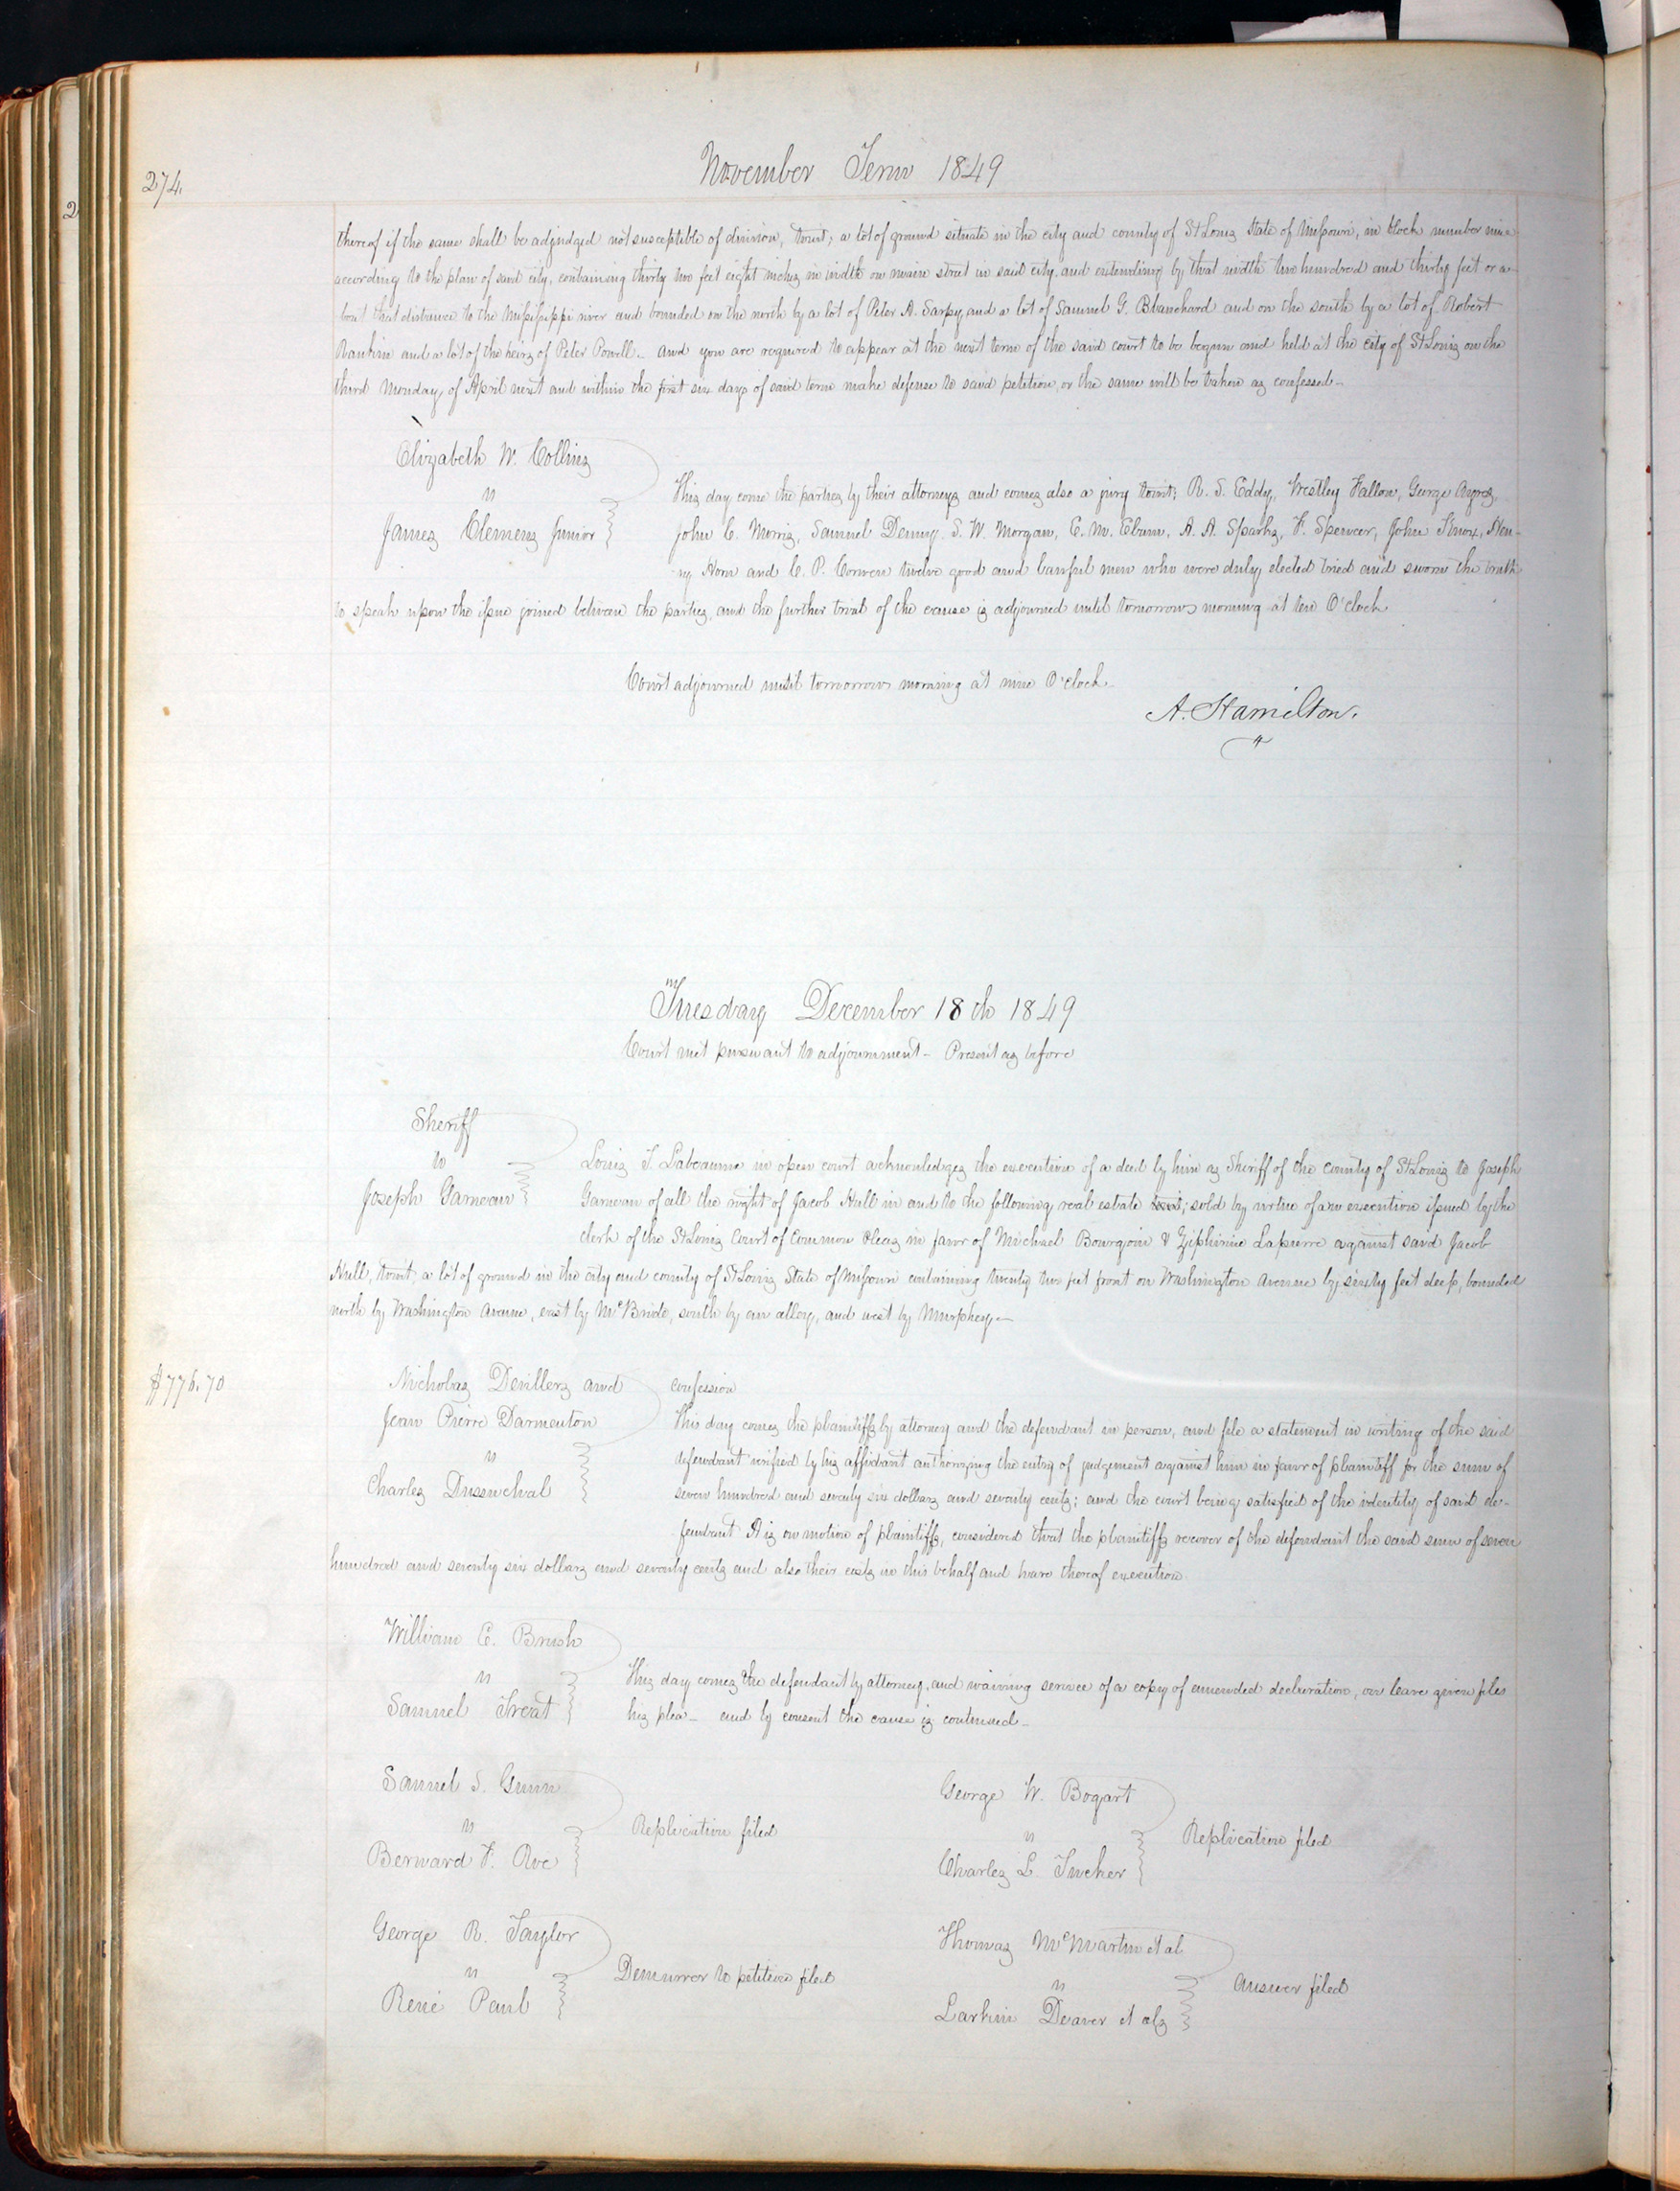 274.
November Term 1849
2
thereof if the same shall be adjudged not susceptible of division, towit; a lot of ground situate in the city and county of St Louis State of Missouri, in block number nine
according to the plan of said city, containing thirty two feet eight inches in width on main street in said city, and extending by that width two hundred and thirty feet or a-
bout that distance to the Mississippi river and bounded on the north by a lot of Peter A. Sarpy and a lot of Samuel G. Blanchard and on the south by a lot of Robert
Rankin and a lot of the heirs of Peter Powell. And you are required to appear at the next term of the said court to be begun and held at the city of St Louis on the
third Monday of April next and within the first six days of said term make defense to said petition, or the same will be taken as confessed—
Elizabeth W. Collins
vs
James Clemens Junior
This day come the parties by their attorneys and comes also a jury towit; R. S. Eddy, Westley Fallon, George Ayres,
John C. Morris, Samuel Denny, S. W. Morgan, E. M. Elum, A. A. Sparks, F. Spencer, John Knox, Hen-
ry Horn and C. P. Conven twelve good and lawful men who were duly elected tried and sworn the truth
to speak upon the issue joined between the parties, and the further trial of the cause is adjourned until tomorrow morning at ten O'clock
Court adjourned until tomorrow morning at nine O'clock—
A. Hamilton.
Tuesday December 18th 1849
Court met pursuant to adjournment— Present as before
Sheriff
to
Joseph Garneau
Louis T. Labeaume in open court acknowledges the execution of a deed by him as Sheriff of the county of St Louis to Joseph
Garneau of all the right of Jacob Hull in and to the following real estate towit; sold by virtue of an execution issued by the
clerk of the St Louis Court of Common Pleas in favor of Michael Bourgoin & Ziphirine Lapierre against said Jacob
Hull, towit; a lot of ground in the city and county of St Louis, State of Missouri containing twenty two feet front on Washington Avenue by sixty feet deep, bounded
north by Washington Avenue, east by McBride, south by an alley, and west by Murphey—
$776.70
Nicholas Devillers and
Jean Pierre Darmenton
vs
Charles Dusenchal
confession
This day comes the plaintiffs by attorney and the defendant in person, and file a statement in writing of the said
defendant verified by his affidavit authorizing the entry of judgement against him in favor of plaintiff for the sum of
seven hundred and seventy six dollars and seventy cents; and the court being satisfied of the identity of said de-
fendant It is on motion of plaintiffs, considered that the plaintiffs recover of the defendant the said sum of seven
hundred and seventy six dollars and seventy cents and also their costs in this behalf and have thereof execution.
William E. Brush
vs
Samuel Treat
This day comes the defendant by attorney, and waiving service of a copy of amended declaration, on leave given files
his plea— and by consent the cause is continued—
Samuel S. Gunn
vs
Bernard F. Ave
Replication filed
George W. Bogart
vs
Charles L. Tucker
Replication filed
George R. Taylor
vs
René Paul
Demurrer to petition filed
Thomas McMartin et al
vs
Larkin Deaver et als
Answer filed